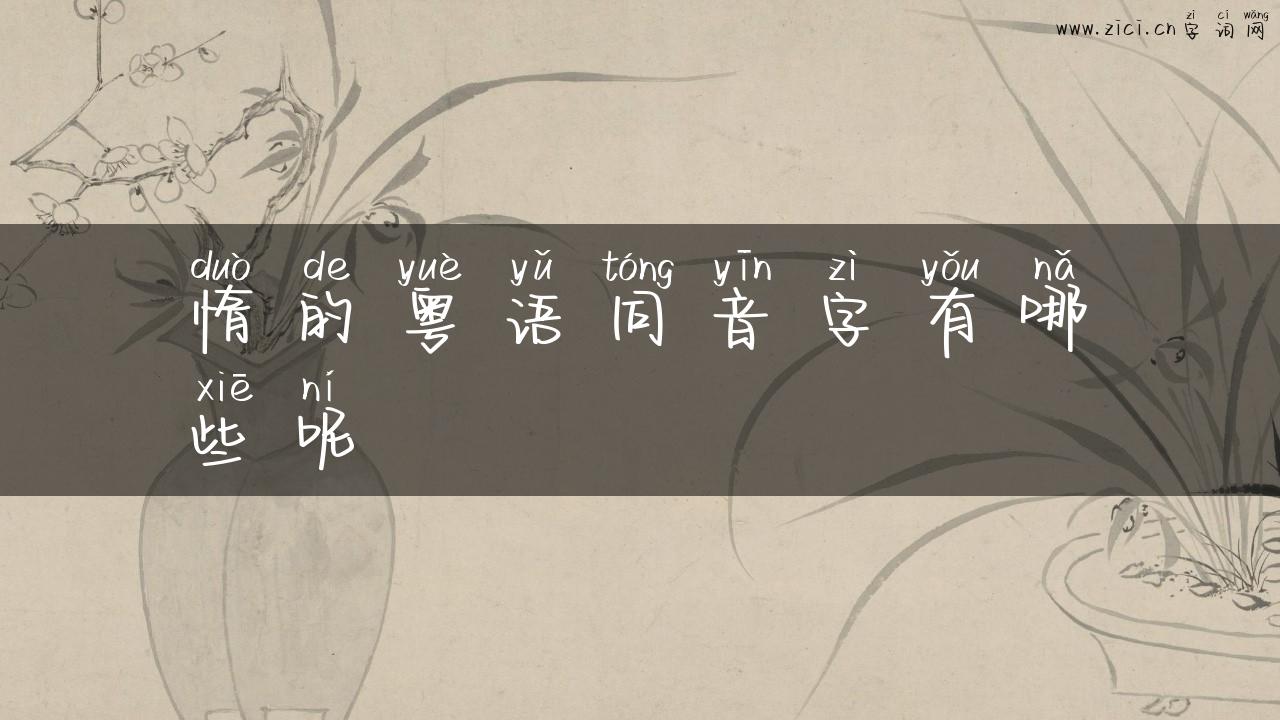 zì cí wǎng
www.zici.cn 字词网
duò de yuè yǔ tóng yīn zì yǒu nǎ
惰的粤语同音字有哪
xiē ní
些呢